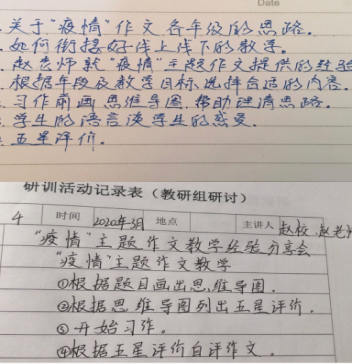 Date
关于"疫情"作文各年级的思路.
如何衔接好线上线下的教学.
赵老师就"疫情"主题作文提供的经验
根据年段及教学目标,选择合适的内容.
习作前画思维导图,帮助理清思路.
学生的语言谈学生的感受.
五星评价.
研训活动记录表（教研组研讨）
4 时间 2020年3月 地点 主讲人 赵校.赵老
"疫情"主题作文教学经验分享会
"疫情"主题作文教学
①根据题目画出思维导图.
②根据思维导图列出五星评价.
③开始习作.
④根据五星评价自评作文.